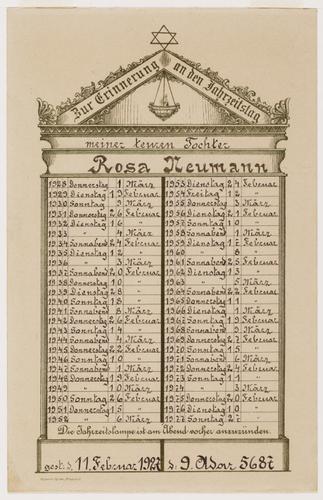 Zur Erinnerung an den Jahrzeitstag
meiner teuren Tochter
Rosa Neumann
1928 Donnerstag 1 März 1953 Dienstag 24 Februar
1929 Dienstag 19 Februar 1954 Freitag 12 "
1930 Sonntag 9 März 1955 Donnerstag 3 März
1931 Donnerstag 26 Februar 1956 Dienstag 21 Februar
1932 Dienstag 16 " 1957 Sonntag 10 "
1933 " 7 März 1958 Sonnabend 1 März
1934 Sonnabend 24 Februar 1959 Dienstag 17 Februar
1935 Dienstag 12 " 1960 " 8 "
1936 " 3 März 1961 Sonnabend 25 Februar
1937 Sonnabend 20 Februar 1962 Dienstag 13 "
1938 Donnerstag 10 " 1963 " 5 März
1939 Dienstag 28 " 1964 Sonnabend 22 Februar
1940 Sonntag 18 " 1965 Donnerstag 11 "
1941 Sonnabend 8 März 1966 Dienstag 1 März
1942 Donnerstag 26 Februar 1967 Sonntag 19 Februar
1943 Sonntag 14 " 1968 Sonnabend 9 März
1944 Sonnabend 4 März 1969 Donnerstag 27 Februar
1945 Donnerstag 22 Februar 1970 Sonntag 15 "
1946 Sonntag 10 " 1971 Sonnabend 6 März
1947 Sonnabend 1 März 1972 Donnerstag 24 Februar
1948 Donnerstag 19 Februar 1973 Sonntag 11 "
1949 " 10 März 1974 " 3 März
1950 Sonntag 26 Februar 1975 Donnerstag 20 Februar
1951 Donnerstag 15 " 1976 Dienstag 10 "
1952 " 6 März 1977 Sonntag 27 "
Die Jahrzeitslampe ist am Abend vorher anzuzünden.
gest. d. 11. Februar 1927 d. 9. Adar 5687